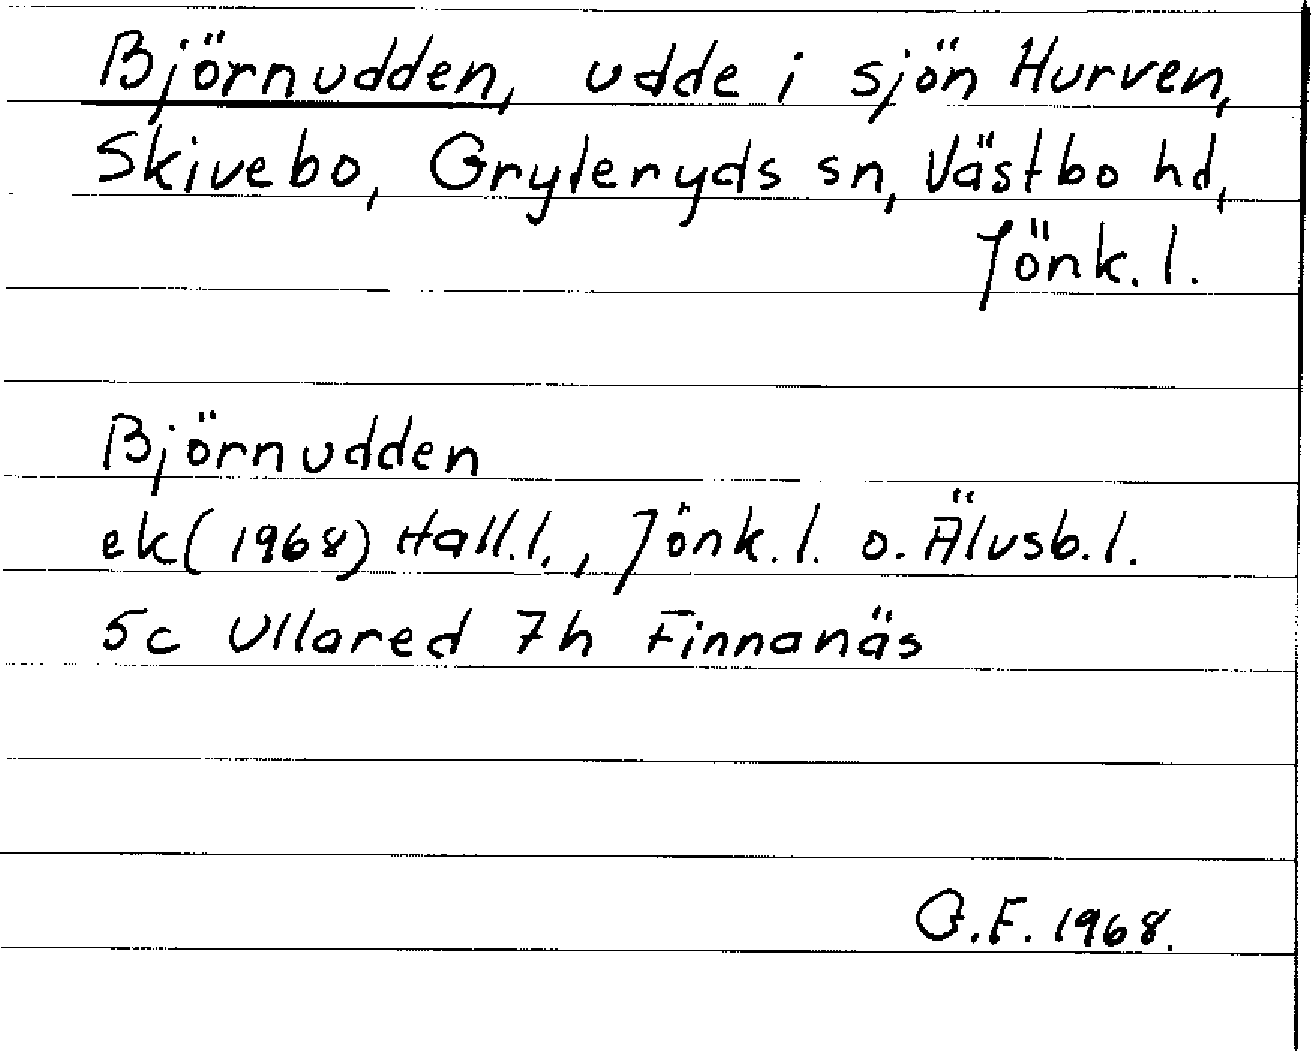 Björnudden, udde i sjön Hurven,
Skivebo, Gryteryds sn, Västbo hd,
Jönk. l.
Björnudden
ek (1968) Hall. l., Jönk. l. o. Älvsb. l.
5c Ullared 7h Finnanäs
G.F. 1968.